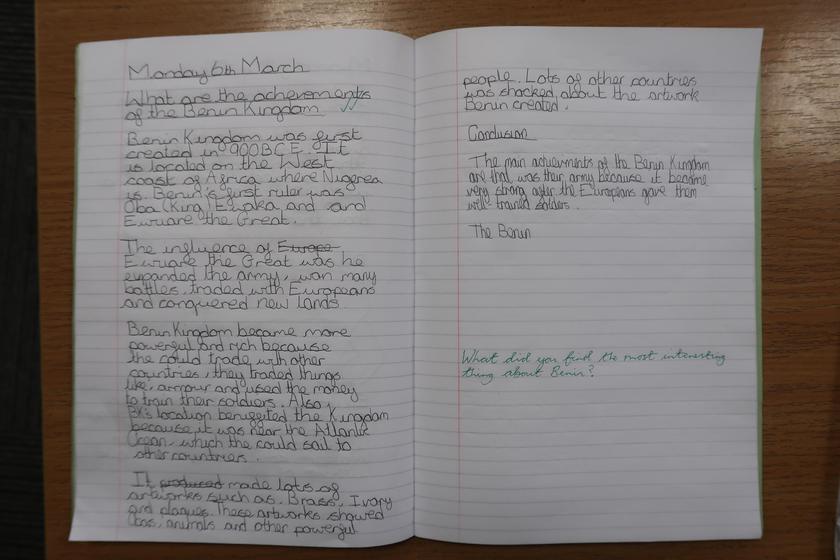 Monday 6th March
What are the acheivements
of the Benin Kingdom
Benin Kingdom was first
created in 900BCE. It
is located on the West
coast of Africa where Nigerea
is. Benin's first ruler was
Oba (King) Eweka and and
Ewuare the Great.
The influence of Europe
Ewuare the Great was he
expanded the army, won many
battles, traded with Europeans
and conquered new lands
Benin Kingdom became more
powerful and rich because
the could trade with other
countries, they traded things
like, armour and used the money
to train their soldiers. Also,
BK's location benefited the Kingdom
because it was near the Atlantic
Ocean, which the could sail to
other countries.
It produced made lots of
artworks such as. Brass, Ivory
and plaques. These artworks showed
Obas, animals and other powerful
people. Lots of other countries
was shocked about the artwork
Benin created.
Conclusion
The main acheivments of the Benin Kingdom
are that was their army because it became
very strong after the Europeans gave them
well-trained soldiers.
The Benin
What did you find the most interesting
thing about Benin?